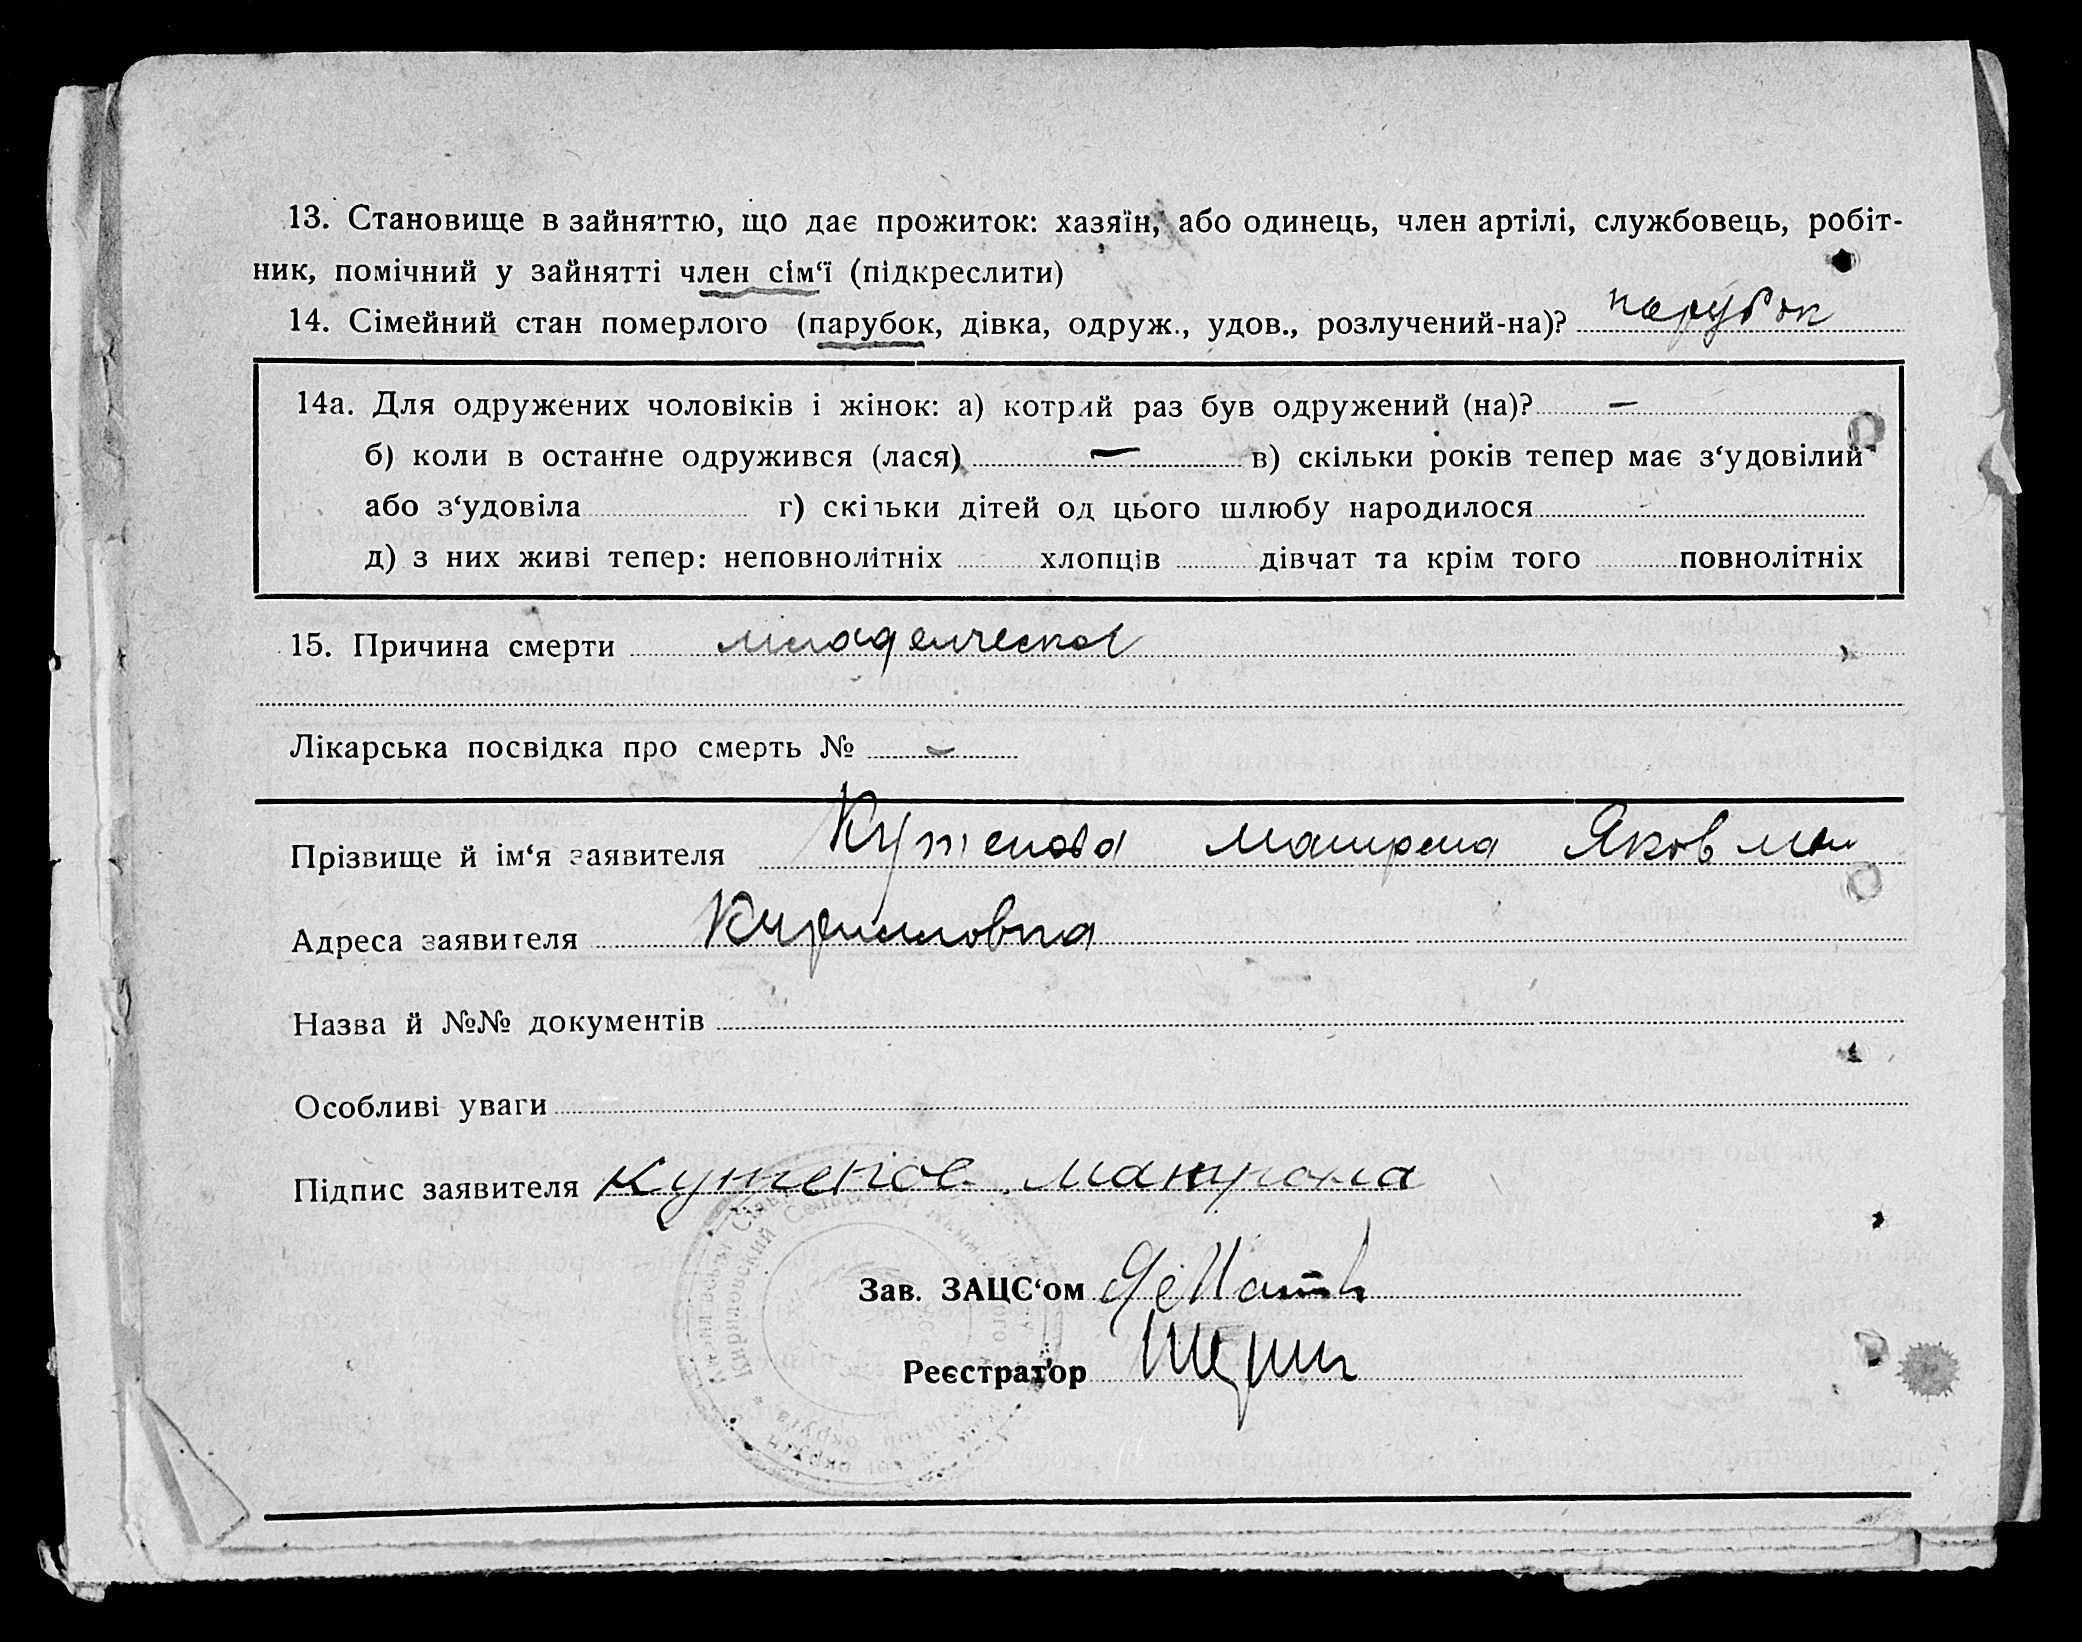 13. Становище в зайняттю, що дає прожиток: хазяїн, або одинець, член артілі, службовець, робіт-
ник, помічний у зайнятті член сім‘ї (підкреслити)
14. Сімейний стан померлого (парубок, дівка, одруж., удов., розлучений-на)? парубок
14а. Для одружених чоловіків і жінок: а) котрий раз був одружений (на)? —
б) коли в останнє одружився (лася) — в) скільки років тепер має з‘удовілий
або з‘удовіла г) скільки дітей од цього шлюбу народилося
д) з них живі тепер: неповнолітніх хлопців дівчат та крім того повнолітніх
15. Причина смерти младенческая
Лікарська посвідка про смерть № —
Прізвище й ім‘я заявителя Кутепова Матрена
Адреса заявителя Кирилловка
Назва й №№ документів
Особливі уваги
Підпис заявителя Кутепов Матрона
Зав. ЗАЦС‘ом
Реєстратор
Кириловский
округи